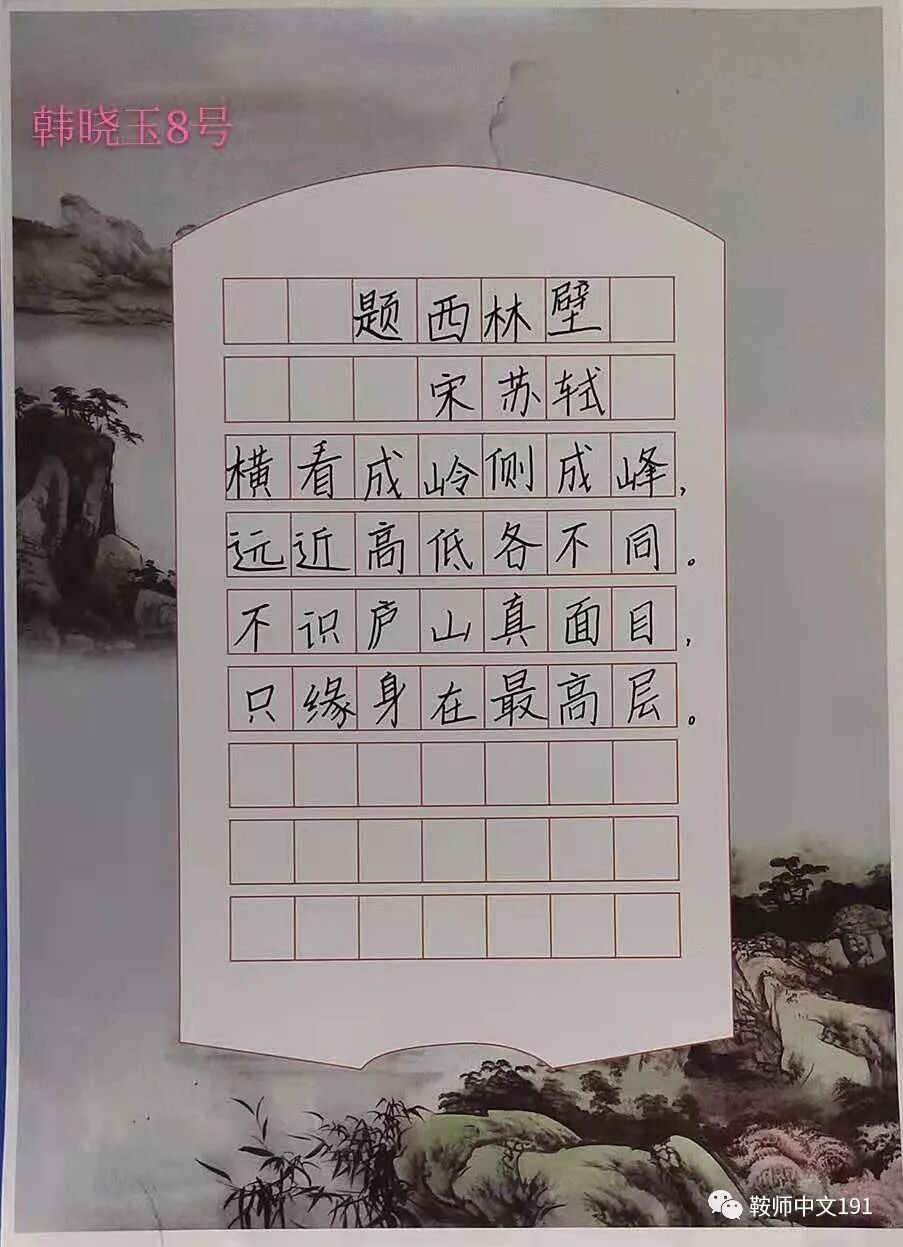 韩晓玉8号
题西林壁
宋苏轼
横看成岭侧成峰，
远近高低各不同。
不识庐山真面目，
只缘身在最高层。
鞍师中文191